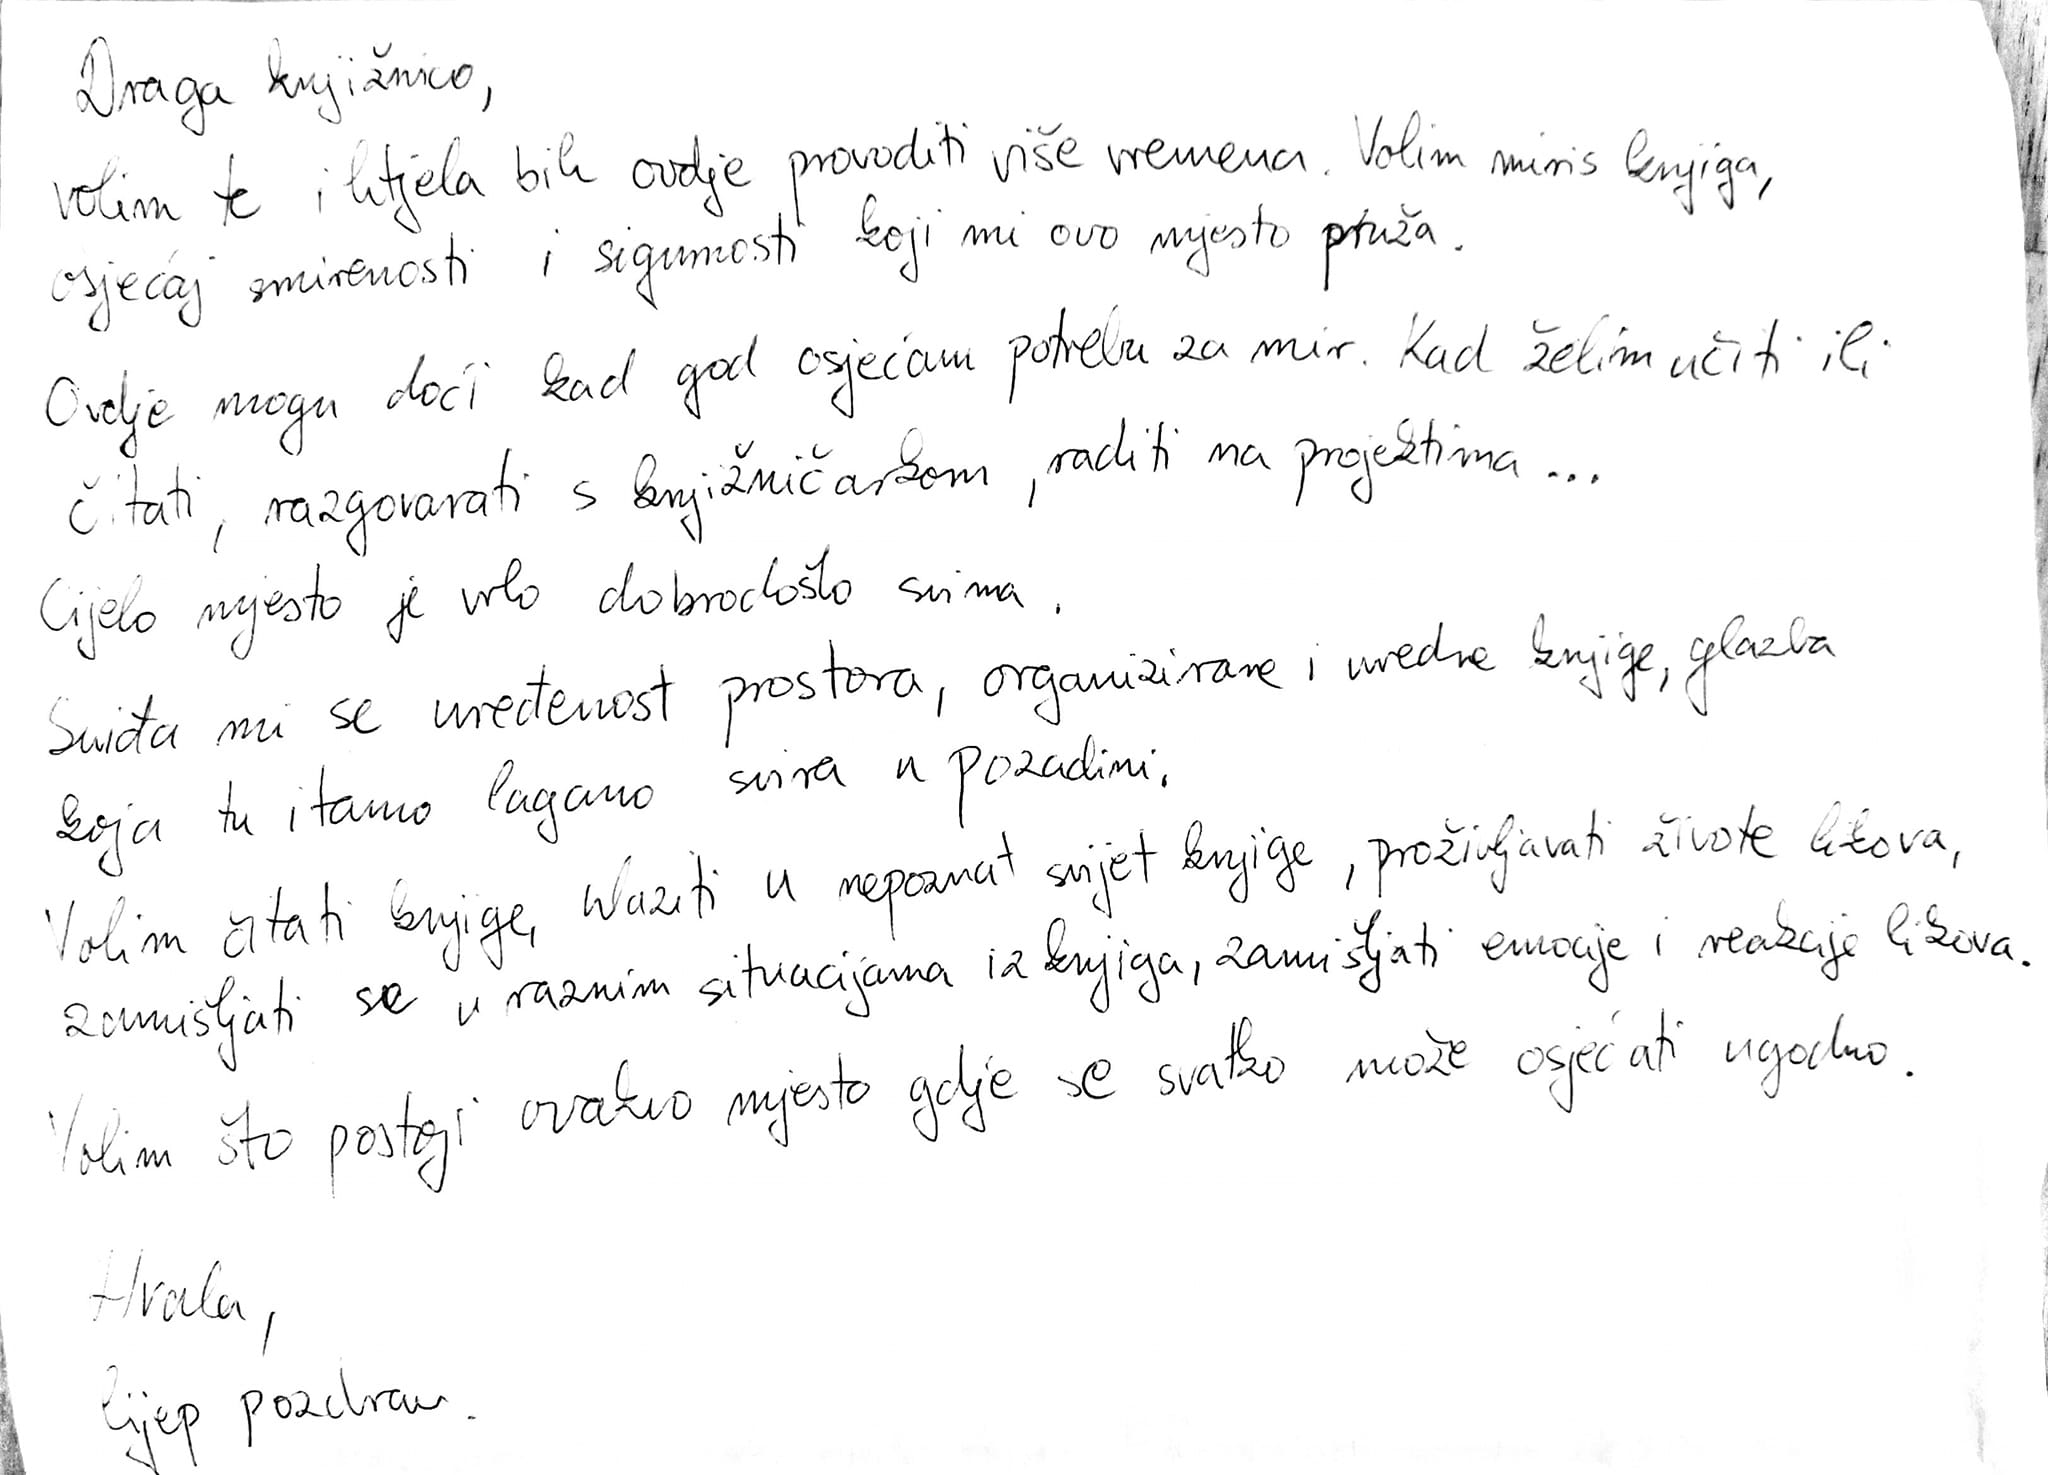 Draga knjižnico,
volim te i htjela bih ovdje provoditi više vremena. Volim miris knjiga,
osjećaj smirenosti i sigurnosti koji mi ovo mjesto pruža.
Ovdje mogu doći kad god osjećam potrebu za mir. Kad želim učiti ili
čitati, razgovarati s knjižničarkom, raditi na projektima...
Cijelo mjesto je vrlo dobrodošlo svima.
Sviđa mi se uređenost prostora, organizirane i uredne knjige, glazba
koja tu i tamo lagano svira u pozadini.
Volim čitati knjige, ulaziti u nepoznat svijet knjige, proživljavati živote likova,
zamišljati se u raznim situacijama iz knjiga, zamišljati emocije i reakcije likova.
Volim što postoji ovakvo mjesto gdje se svatko može osjećati ugodno.
Hvala,
lijep pozdrav.